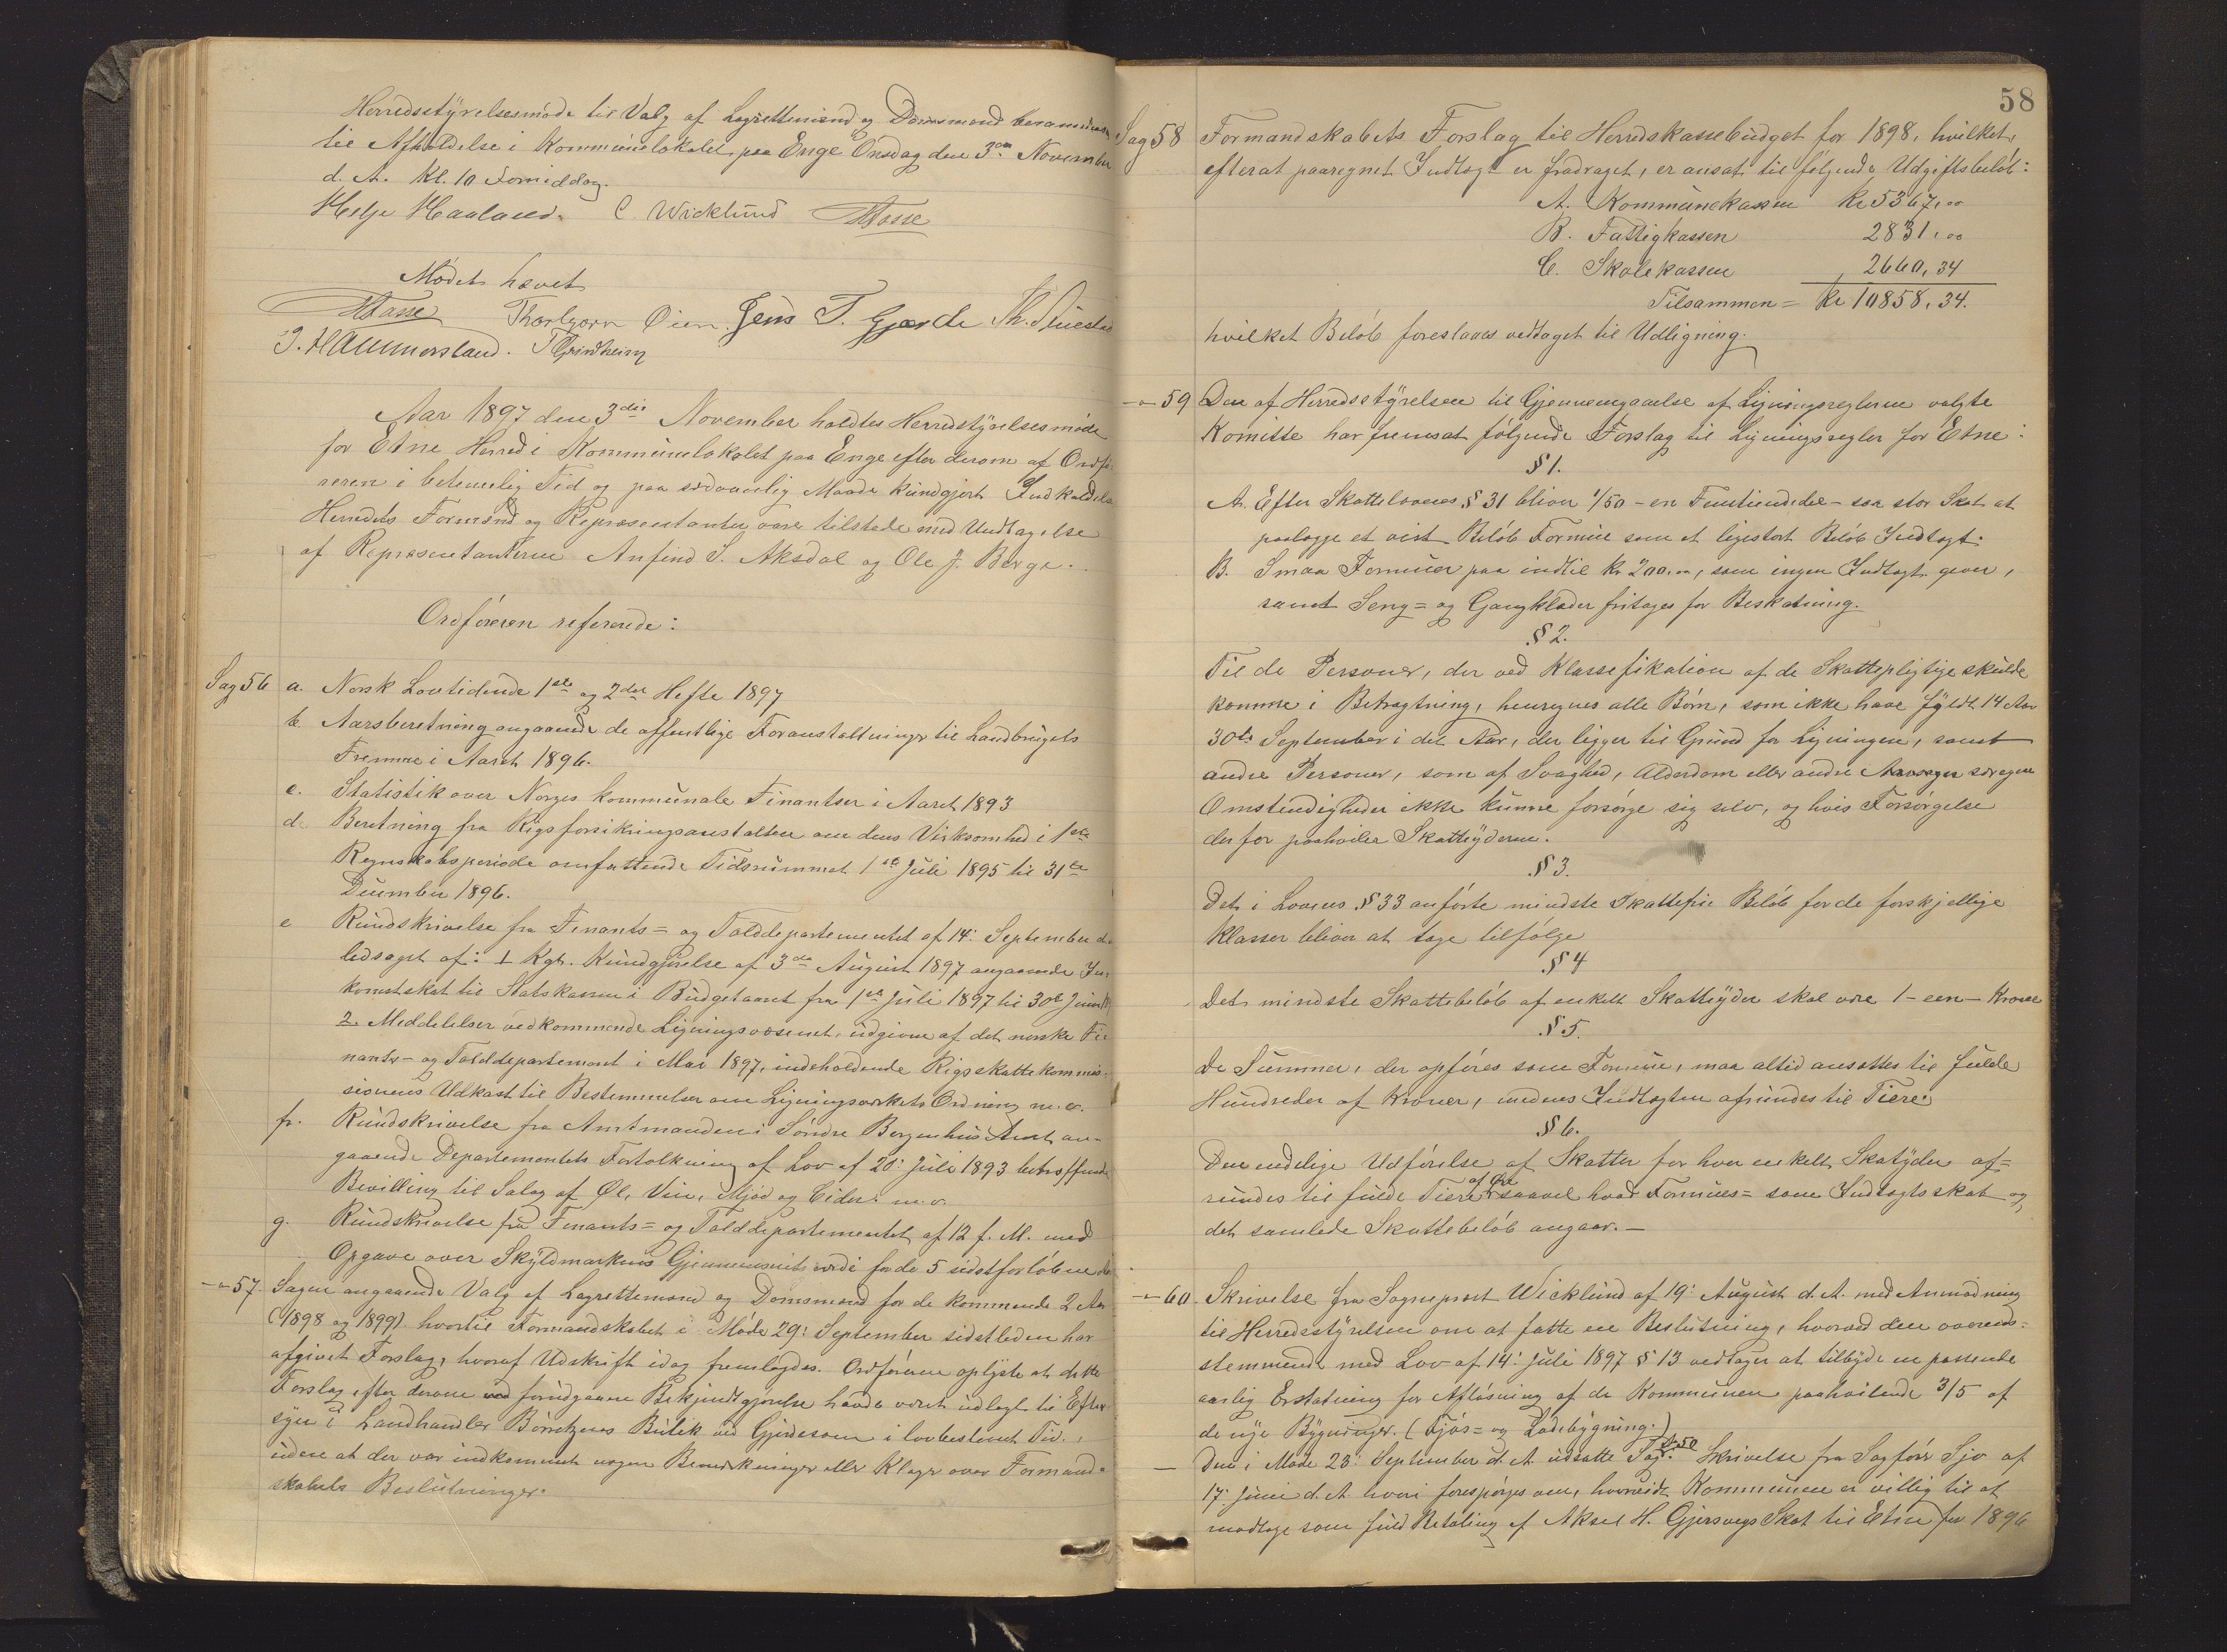 Herredsstyrelsesmøde til Valg af Lagrettemænd og Domsmænd berammedes
til Afholdelse i Kommunelokalet paa Enge Onsdag den 3die November
d. A. Kl. 10 Formiddag.
Helje Haaland. C Wicklund HTasse
Mødet hævet
Thorbjørn Øien. Jens T. Gjerde
J. Hammersland. T Grindheim
Aar 1897 den 3die November holdtes Herredstyrelsesmøde
for Etne Herred i Kommunelokalet paa Enge efter derom af Ordfø-
reren i betimelig Tid og paa sedvanlig Maade kundgjort Indkaldelse
Herredets Formænd og Repræsentanter vare tilstede med Undtagelse
af Repræsentanterne Anfind S. Aksdal og Ole J. Berge.
Ordføreren refererede:
Sag 56 a. Norsk Lovtidende 1ste og 2det Hefte 1897
b. Aarsberetning angaaende de offentlige Foranstaltninger til Landbrugets
Fremme i Aaret 1896.
c. Statistik over Norges kommunale Finantser i Aaret 1893
d. Beretning fra Rigsforsikringsanstalten om dens Virksomhed i 1ste
Regnskabsperiode omfattende Tidsrummet 1ste Juli 1895 til 31te
December 1896.
e Rundskrivelse fra Finants= og Tolddepartementet af 14: September d.
ledsaget af: 1 Kgl. Kundgjørelse af 3die August 1897 angaaende In-
komstskat til Statskassen i Budgetaaret fra 1ste Juli 1897 til 30te Juni
2 Meddelelser vedkommende Ligningsvæsenet, udgivne af det norske Fi-
nants- og Tolddepartement i Mai 1897, indeholdende Rigsskattekommis-
sionens Udkast til Bestemmelser om Ligningsværkets Ordning m.v.
f. Rundskrivelse fra Amtmanden i Søndre Bergenhus Amt an-
gaaende Departementets Fortolkning af Lov af 20: Juli 1893 betreffende
Bevilling til Salg af Øl, Vin, Mjød og Cider m.v.
g. Rundskrivelse fra Finants= og Tolddepartementet af 12 f. M. med
Opgave over Skyldmarkens Gjennemsnitsværdi for de 5 sidstforløbne
-"-57. Sagen angaaende Valg af Lagrettemænd og Domsmænd for de kommende 2 Aar
(1898 og 1899) hvortil Formandskabet i Møde 29: September sidstleden har
afgivet Forslag, hvoraf Udskrift idag fremlagdes. Ordføreren oplyste at dette
Forslag efter derom ved forudgaaen Bekjendtgjørelse havde været udlagt til Efter-
syn i Landhandler Børretzens Butik ved Gjerdesøen i lovbestemt Tid,
uden at der var indkommet nogen Bemærkninger eller Klager over Formand-
skabets Beslutninger.
58
Sag 58 Formandskabets Forslag til Herredskassebudget for 1898, hvilket,
efterat paaregnet Indtægt er fradraget, er ansat til følgende Udgiftsbeløb:
A. Kommunekassen Kr 5367,00
B. Fattigkassen 2831,00
C. Skolekassen 2660,34
Tilsammen = Kr 10858,34.
hvilket Beløb foreslaaes vedtaget til Udligning.
-"-59 Den af Herredsstyrelsen til Gjennemgaaelse af Ligningsreglerne valgte
Komitte har fremsat følgende Forslag til Ligningsregler for Etne:
§ 1.
A. Efter Skattelovens § 31 bliver 1/50 - en Femtiendedel - saa stor Skat at
paalægge et vist Beløb Formue som et ligestort Beløb Indtægt.
B. Smaa Formuer paa indtil Kr 200,00, som ingen Indtægt giver,
samt Seng= og Gangklæder fritages for Beskatning.
§ 2.
Til de Personer, der ved Klassefikation af de Skattepligtige skulde
komme i Betragtning, henregnes alle Børn, som ikke have fyldt 14 Aar
30te September i det Aar, der ligger til Grund for Ligningen, samt
andre Personer, som af Svaghed, Alderdom eller andre Aarsager særegne
Omstendigheder ikke kunne forsørge sig selv, og hvis Forsørgelse
derfor paahviler Skatteyderen.
§ 3.
Det i Lovens § 33 anførte mindste Skattefrie Beløb for de forskjellige
Klasser bliver at tage tilfølge
§ 4
Det mindste Skattebeløb af enkelt Skatteyder skal være 1 - een - Krone
§ 5.
De Summer, der opføres som Formue, maa altid ansættes til fulde
Hundreder af Kroner, medens Indtægten afrundes til Tiere.
§ 6.
Den endelige Udførelse af Skatter for hver enkelt Skatyder af=
rundes til fulde Tiere af Øre saavel hvad Formues= som Indtægtsskat og
det samlede Skattebeløb angaar.-
-"-60. Skrivelse fra Sogneprest Wicklund af 19: August d. A. med Anmodning
til Herredsstyrelsen om at fatte en Beslutning, hvorved den overens-
stemmende med Lov af 14: Juli 1897 § 13 vedtager at tilbyde en passende
aarlig Erstatning for Afløsning af de Kommunen paahvilende 3/5 af
de nye Bygninger. (Fjøs= og Ladebygning.)
- Den i Møde 23: September d. A udsatte Sag № 50 Skrivelse fra Sagfører Sjo af
17: Juni d. A. hvori forespørges om, hvorvidt Kommunen er villig til at
modtage som fuld Betaling af Aksel H. Gjersvegs Skat til Etne for 1896